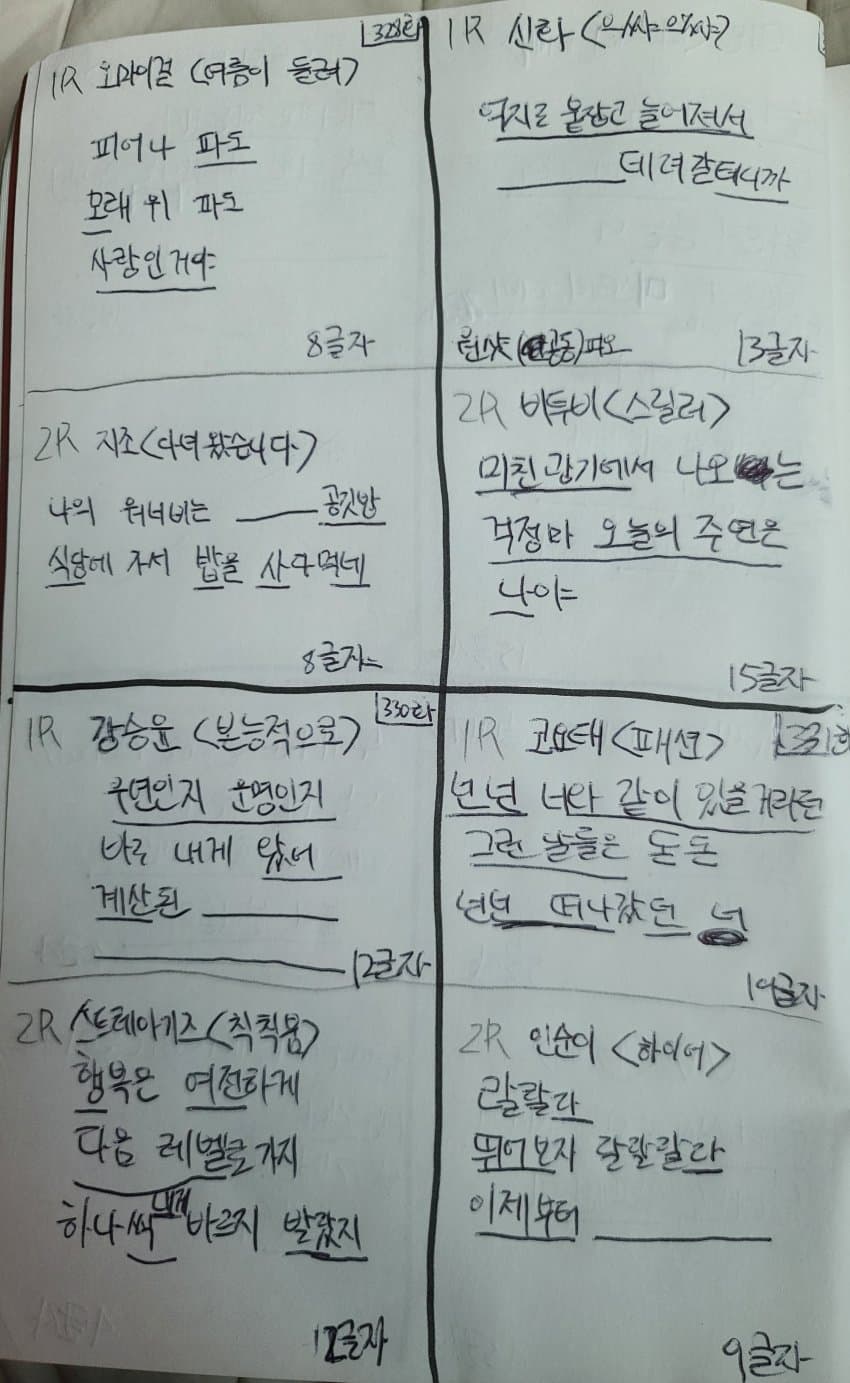 328화
1R 오마이걸 (여름이 들려)
피어나 파도
모래 위 파도
사랑인거야
8글자
2R 지조 (다녀왔습니다)
나의 워너비는 공깃밥
식당에 가서 밥을 사다먹네
8글자
1R 신라 (으쌰으쌰)
억지로 붙잡고 늘어져서
데려갈테니까
원샷 (공동) 피오
13글자
2R 비투비 <스릴러>
미친 광기에서 나오는
걱정마 오늘의 주연은
나야
15글자
330화
1R 강승윤 <본능적으로>
우연인지 운명인지
바로 내게 왔어
계산된
12글자
2R 스트레이키즈 <칙칙붐>
행복은 여전하게
다음 레벨로 가지
하나씩 내게 바르지 발랐지
12글자
331화
1R 코요태 <패션>
년년 너와 같이 있을거라던
그런 날들은 돈돈
년년 떠나갔던 너
19글자
2R 인순이 <하이어>
랄랄라
뛰어보자 랄랄랄라
이제부터
9글자